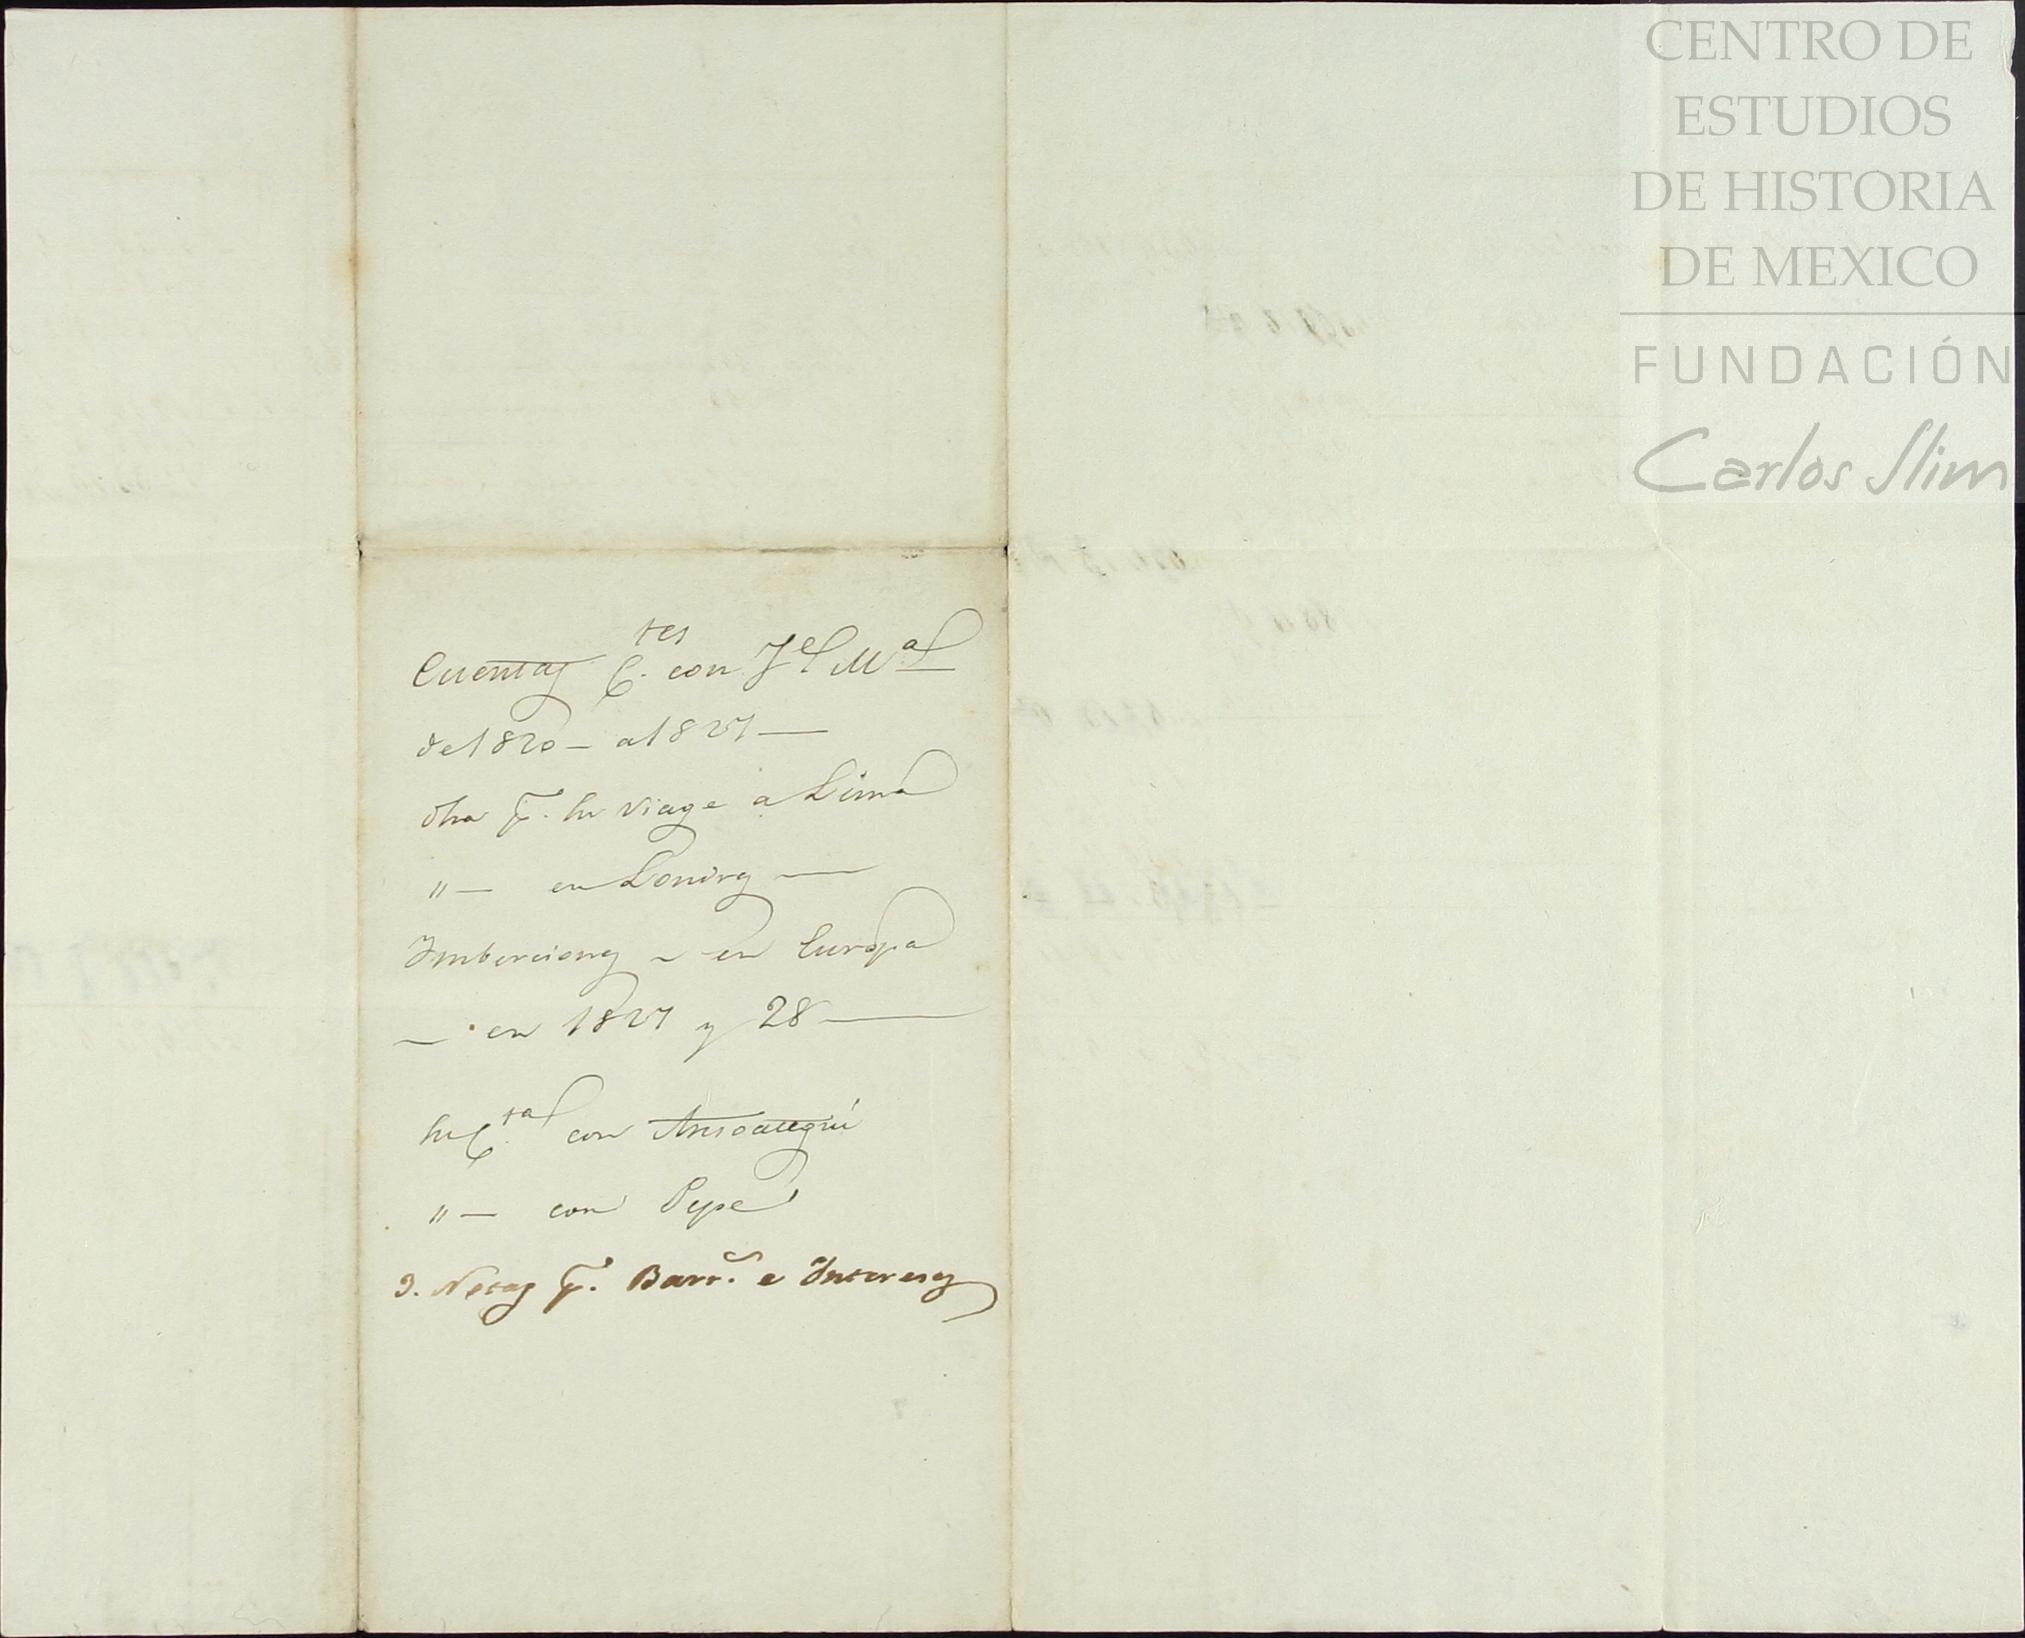 CENTRO DE
ESTUDIOS
DE HISTORIA
DE MEXICO
FUNDACIÓN
Carlos Slim
Cuentas C.tes con Je Ma
de 1820 — al 1827 —
Otra p. su viage a Lima
"— en Londres —
Imberciones — en Europa
— en 1827 y 28 —
su C.ta con Ansoategui
"— con Pepe
3. Notas p. Barr.s e Intereses